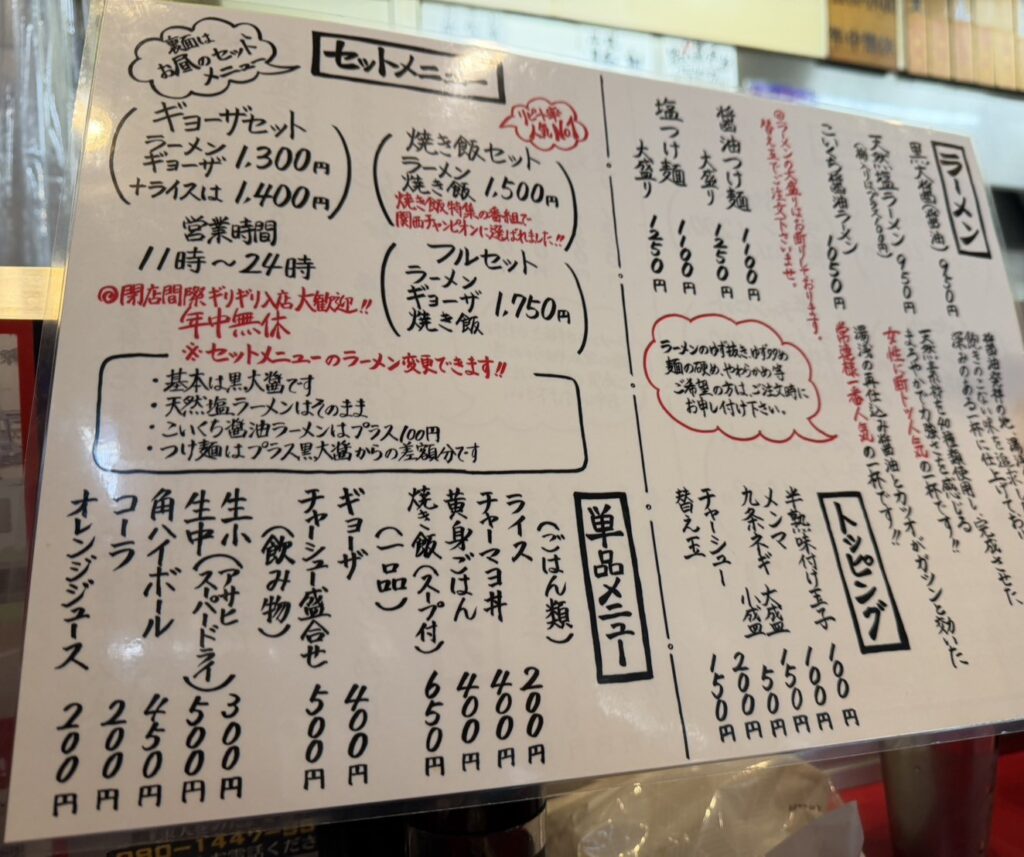 裏面は
お昼のセット
メニュー
セットメニュー
ギョーザセット
ラーメン
ギョーザ 1,300円
+ライスは 1,400円
リピート率
人気No.1
焼き飯セット
ラーメン
焼き飯 1,500円
焼き飯特集の番組で
関西チャンピオンに選ばれました!!
営業時間
11時～24時
◎閉店間際ギリギリ入店大歓迎!!
年中無休
フルセット
ラーメン
ギョーザ 1,750円
焼き飯
※セットメニューのラーメン変更できます!!
・基本は黒大醤です
・天然塩ラーメンはそのまま
・こいくち醤油ラーメンはプラス100円
・つけ麺はプラス黒大醤からの差額分です
ラーメン
黒大醤(醤油) 950円
天然塩ラーメン 950円
こいくち醤油ラーメン 1050円
◎ラーメンの大盛りはお断りしております。
替え玉でご注文下さいませ。
醤油つけ麺 1100円
大盛り 1250円
塩つけ麺 1100円
大盛り 1250円
深みのある一杯に仕上げており
天然素材を40種類使用し、完成させた、
まろやかで力強さを感じる
女性に断トツ人気の一杯です!!
湯浅の再仕込み醤油とカツオがガツンと効いた
常連様一番人気の一杯です!!
ラーメンのゆず抜き、ゆず多め
麺の硬め、やわらかめ等
ご希望の方は、ご注文時に
お申し付け下さい。
トッピング
半熟味付け玉子 100円
メンマ 100円
九条ネギ 大盛 150円
小盛 50円
チャーシュー 200円
替え玉 150円
単品メニュー
(ごはん類)
ライス 200円
チャーマヨ丼 400円
黄身ごはん 400円
焼き飯(スープ付) 650円
(一品)
ギョーザ 400円
チャーシュー盛合せ 500円
(飲み物)
生小(アサヒ 300円
生中(スーパードライ) 500円
角ハイボール 450円
コーラ 200円
オレンジジュース 200円